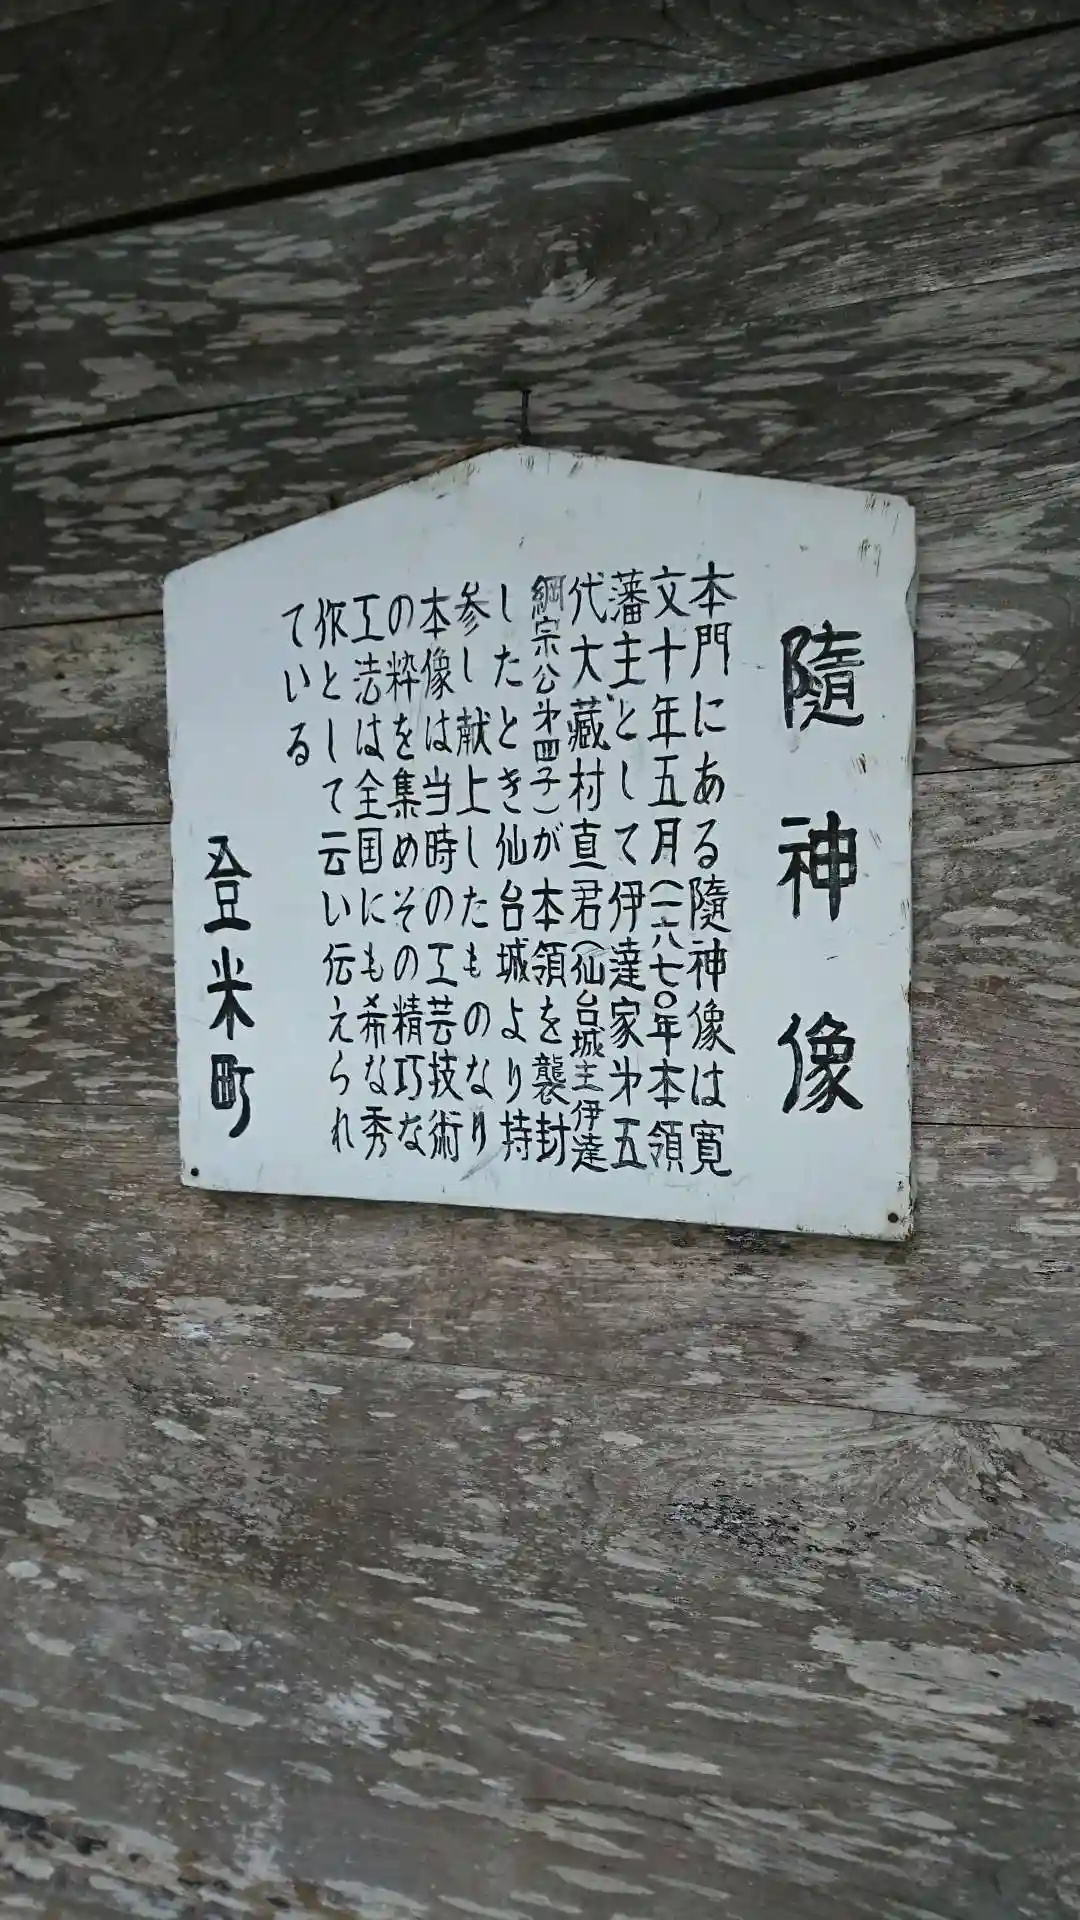 随神像
本門にある随神像は寛
文十年五月(一六七〇年本領
藩主として伊達家第五
代大蔵村直君(仙台城主伊達
綱宗公第四子)が本領を襲封
したとき仙台城より持
参し献上したものなり
本像は当時の工芸技術
の粋を集めその精巧な
工法は全国にも希な秀
作として云い伝えられ
ている
登米町